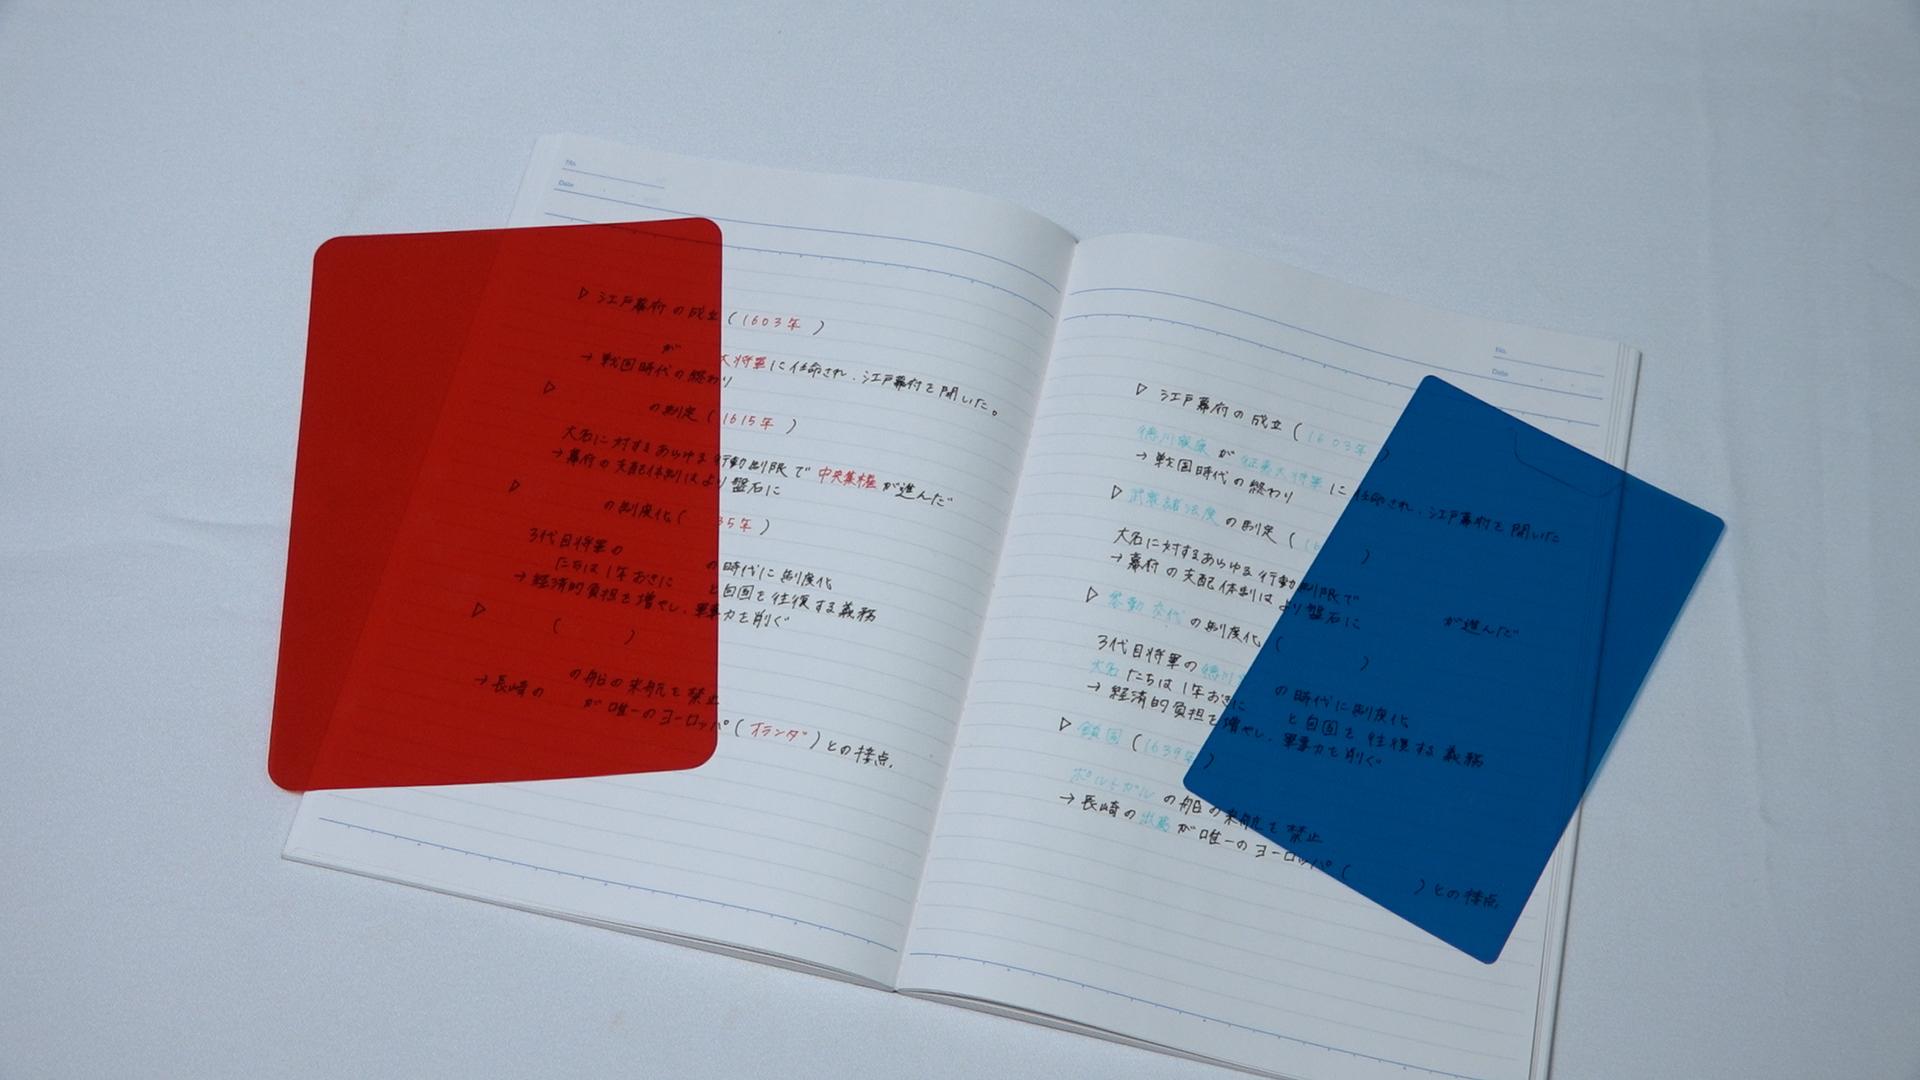 No.
Date
▷ 江戸幕府の成立 (1603年)
が 大将軍に任命され、江戸幕府を開いた。
→ 戦国時代の終わり
▷ の制定 (1615年)
大名に対するあらゆる行動制限で中央集権が進んだ
→ 幕府の支配体制はより盤石に
▷ の制度化 ( 35年)
3代目将軍の の時代に制度化
たちは1年おきに と自国を往復する義務
→ 経済的負担を増やし、軍事力を削ぐ
▷ ( )
の船の来航を禁止
→ 長崎の が唯一のヨーロッパ(オランダ)との接点.
No.
Date
▷ 江戸幕府の成立 (1603年)
徳川家康が征夷大将軍に任命され、江戸幕府を開いた
→ 戦国時代の終わり
▷ 武家諸法度の制定 (16 )
大名に対するあらゆる行動制限で が進んだ
→ 幕府の支配体制はより盤石に
▷ 参勤交代の制度化 ( )
3代目将軍の徳川 の時代に制度化
大名たちは1年おきに と自国を往復する義務
→ 経済的負担を増やし、軍事力を削ぐ
▷ 鎖国 (1639年)
ポルトガルの船の来航を禁止
→ 長崎の出島が唯一のヨーロッパ ( ) との接点.